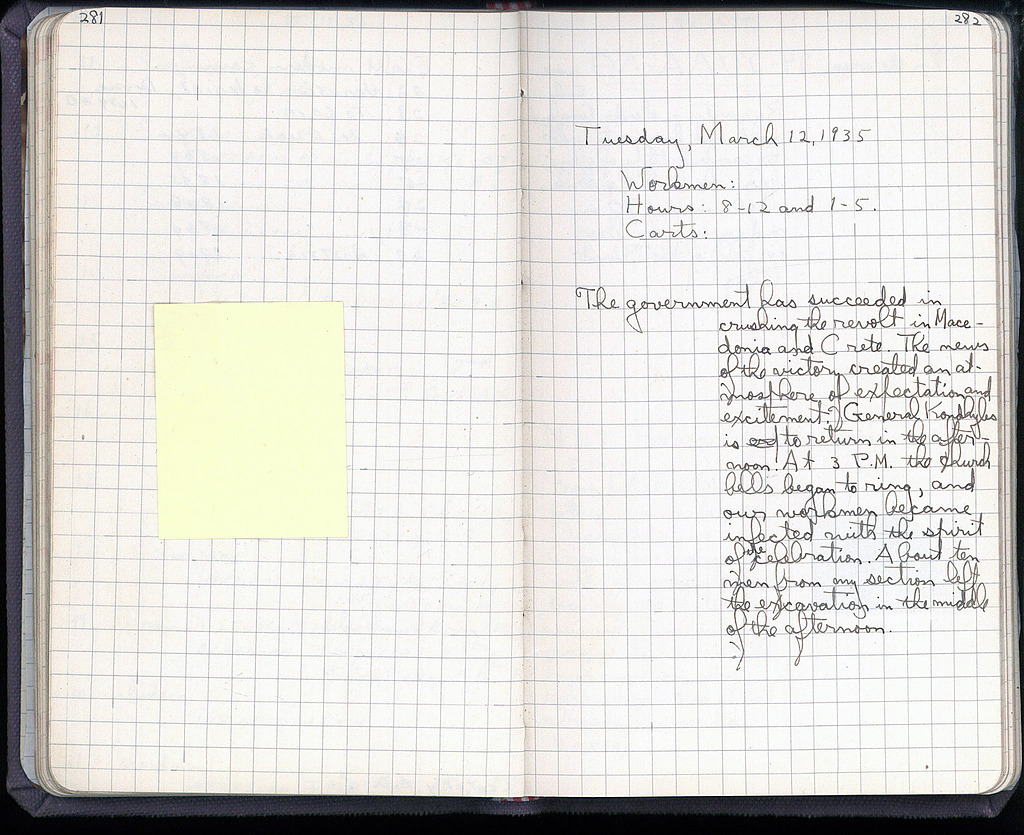 281
282
Tuesday, March 12, 1935
Workmen:
Hours: 8-12 and 1-5.
Carts:
The government has succeeded in
crushing the revolt in Mace-
donia and Crete. The news
of the victory created an at-
mosphere of expectation and
excitement. General Kondyles
is to return in the after-
noon. At 3 P.M. the church
bells began to ring, and
our workmen became
infected with the spirit
of the celebration. About ten
men from my section left
the excavation in the middle
of the afternoon.